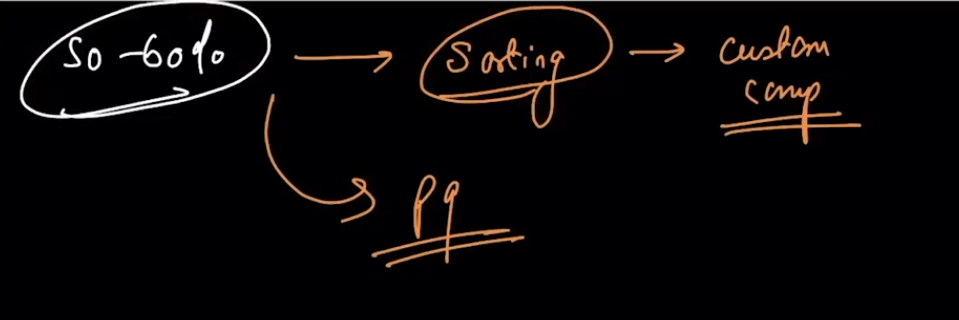 50-60% → Sorting → custom
comp
PQ